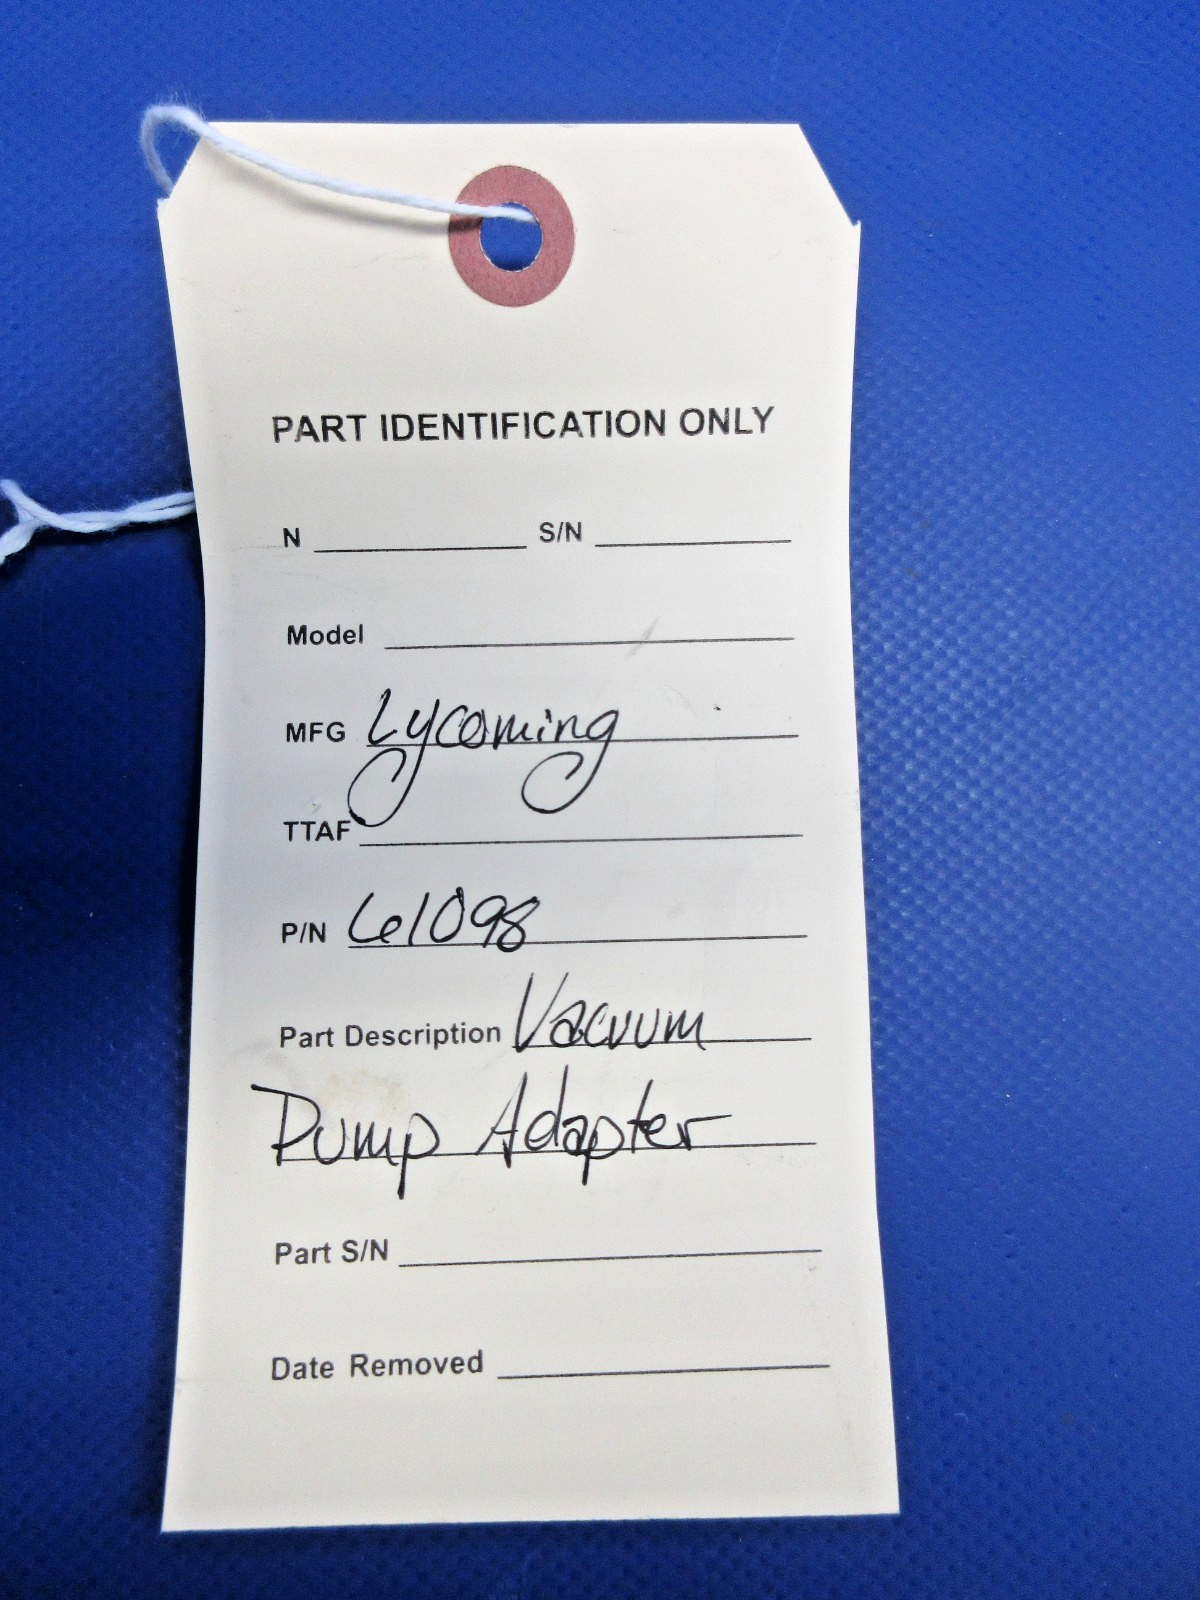 PART IDENTIFICATION ONLY
N S/N
Model
MFG Lycoming
TTAF
P/N 61098
Part Description Vacuum
Pump Adapter
Part S/N
Date Removed